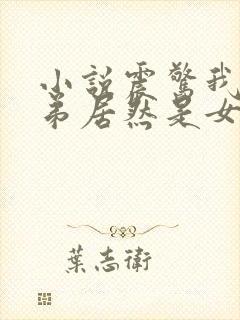 小說震驚我
弟居然是女
葉志衛